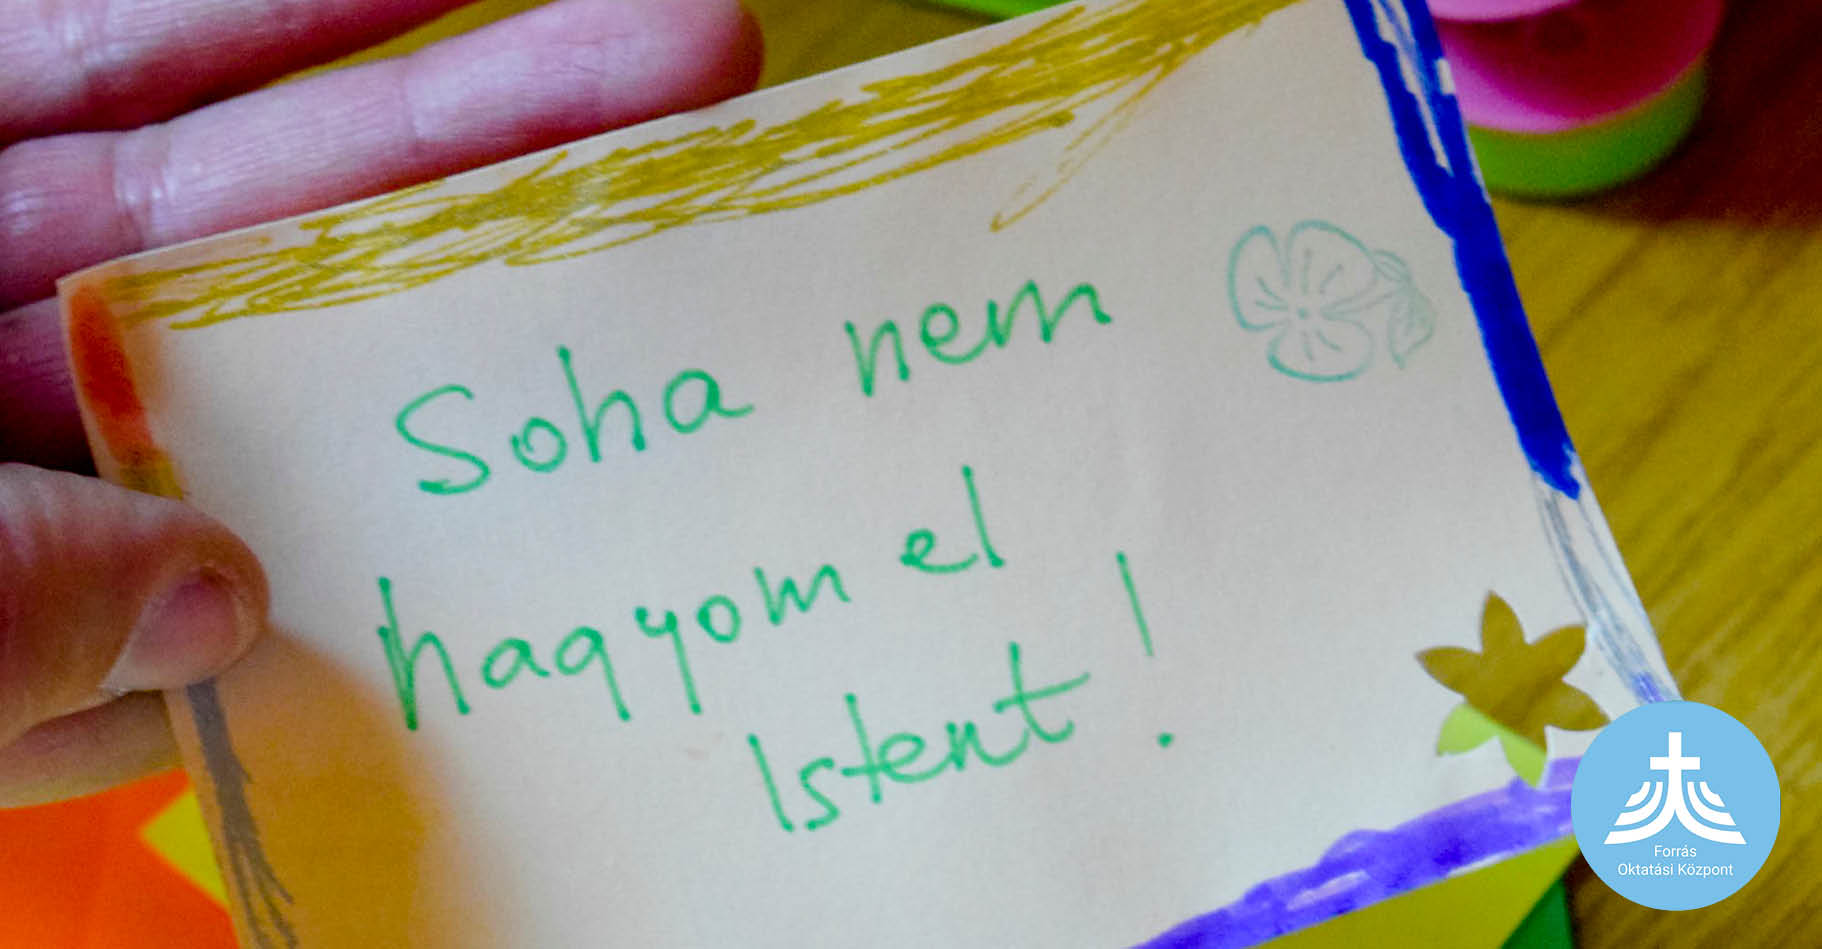 Soha nem
hagyom el
Istent!
Forrás
Oktatási Központ